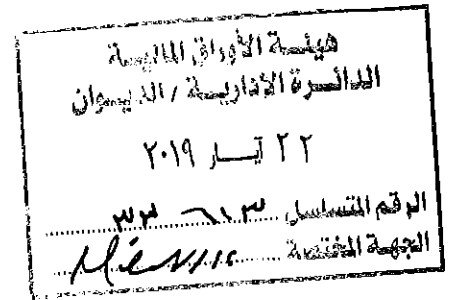 هيئة الأوراق المالية
الدائرة الإدارية / الديوان
٢٢ آيار ٢٠١٩
الرقم المتسلسل
الجهة المختصة